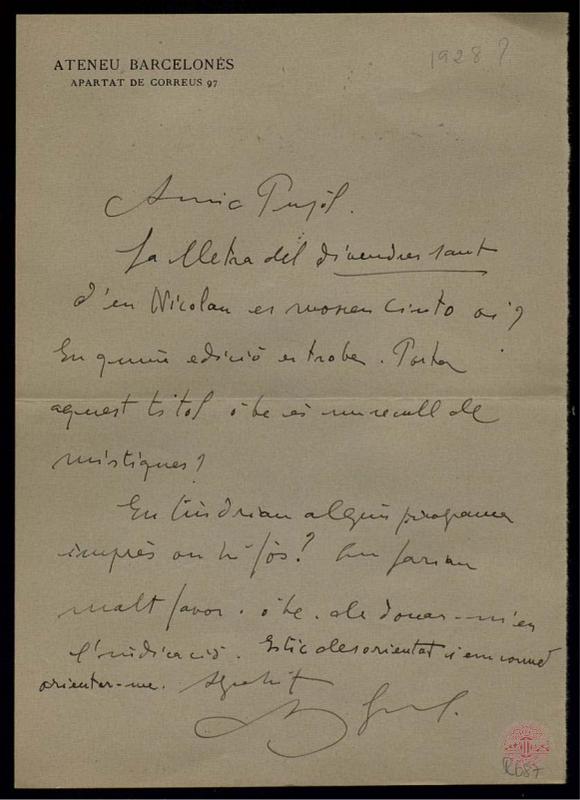 ATENEU BARCELONÈS
APARTAT DE CORREUS 97
1928?
Amic Pujol.
La lletra del divendres sant
d'en Nicolau es mossen Cinto oi?
En quina edició es troba. Porta
aquest titol o be és un recull de
místiques?
En tindrian algún programa
imprès on hi fos? Em farian
molt favor. o be. de donar-m'en
l'indicació. Estic desorientat i em convé
orientar-me. Agrahit
R687